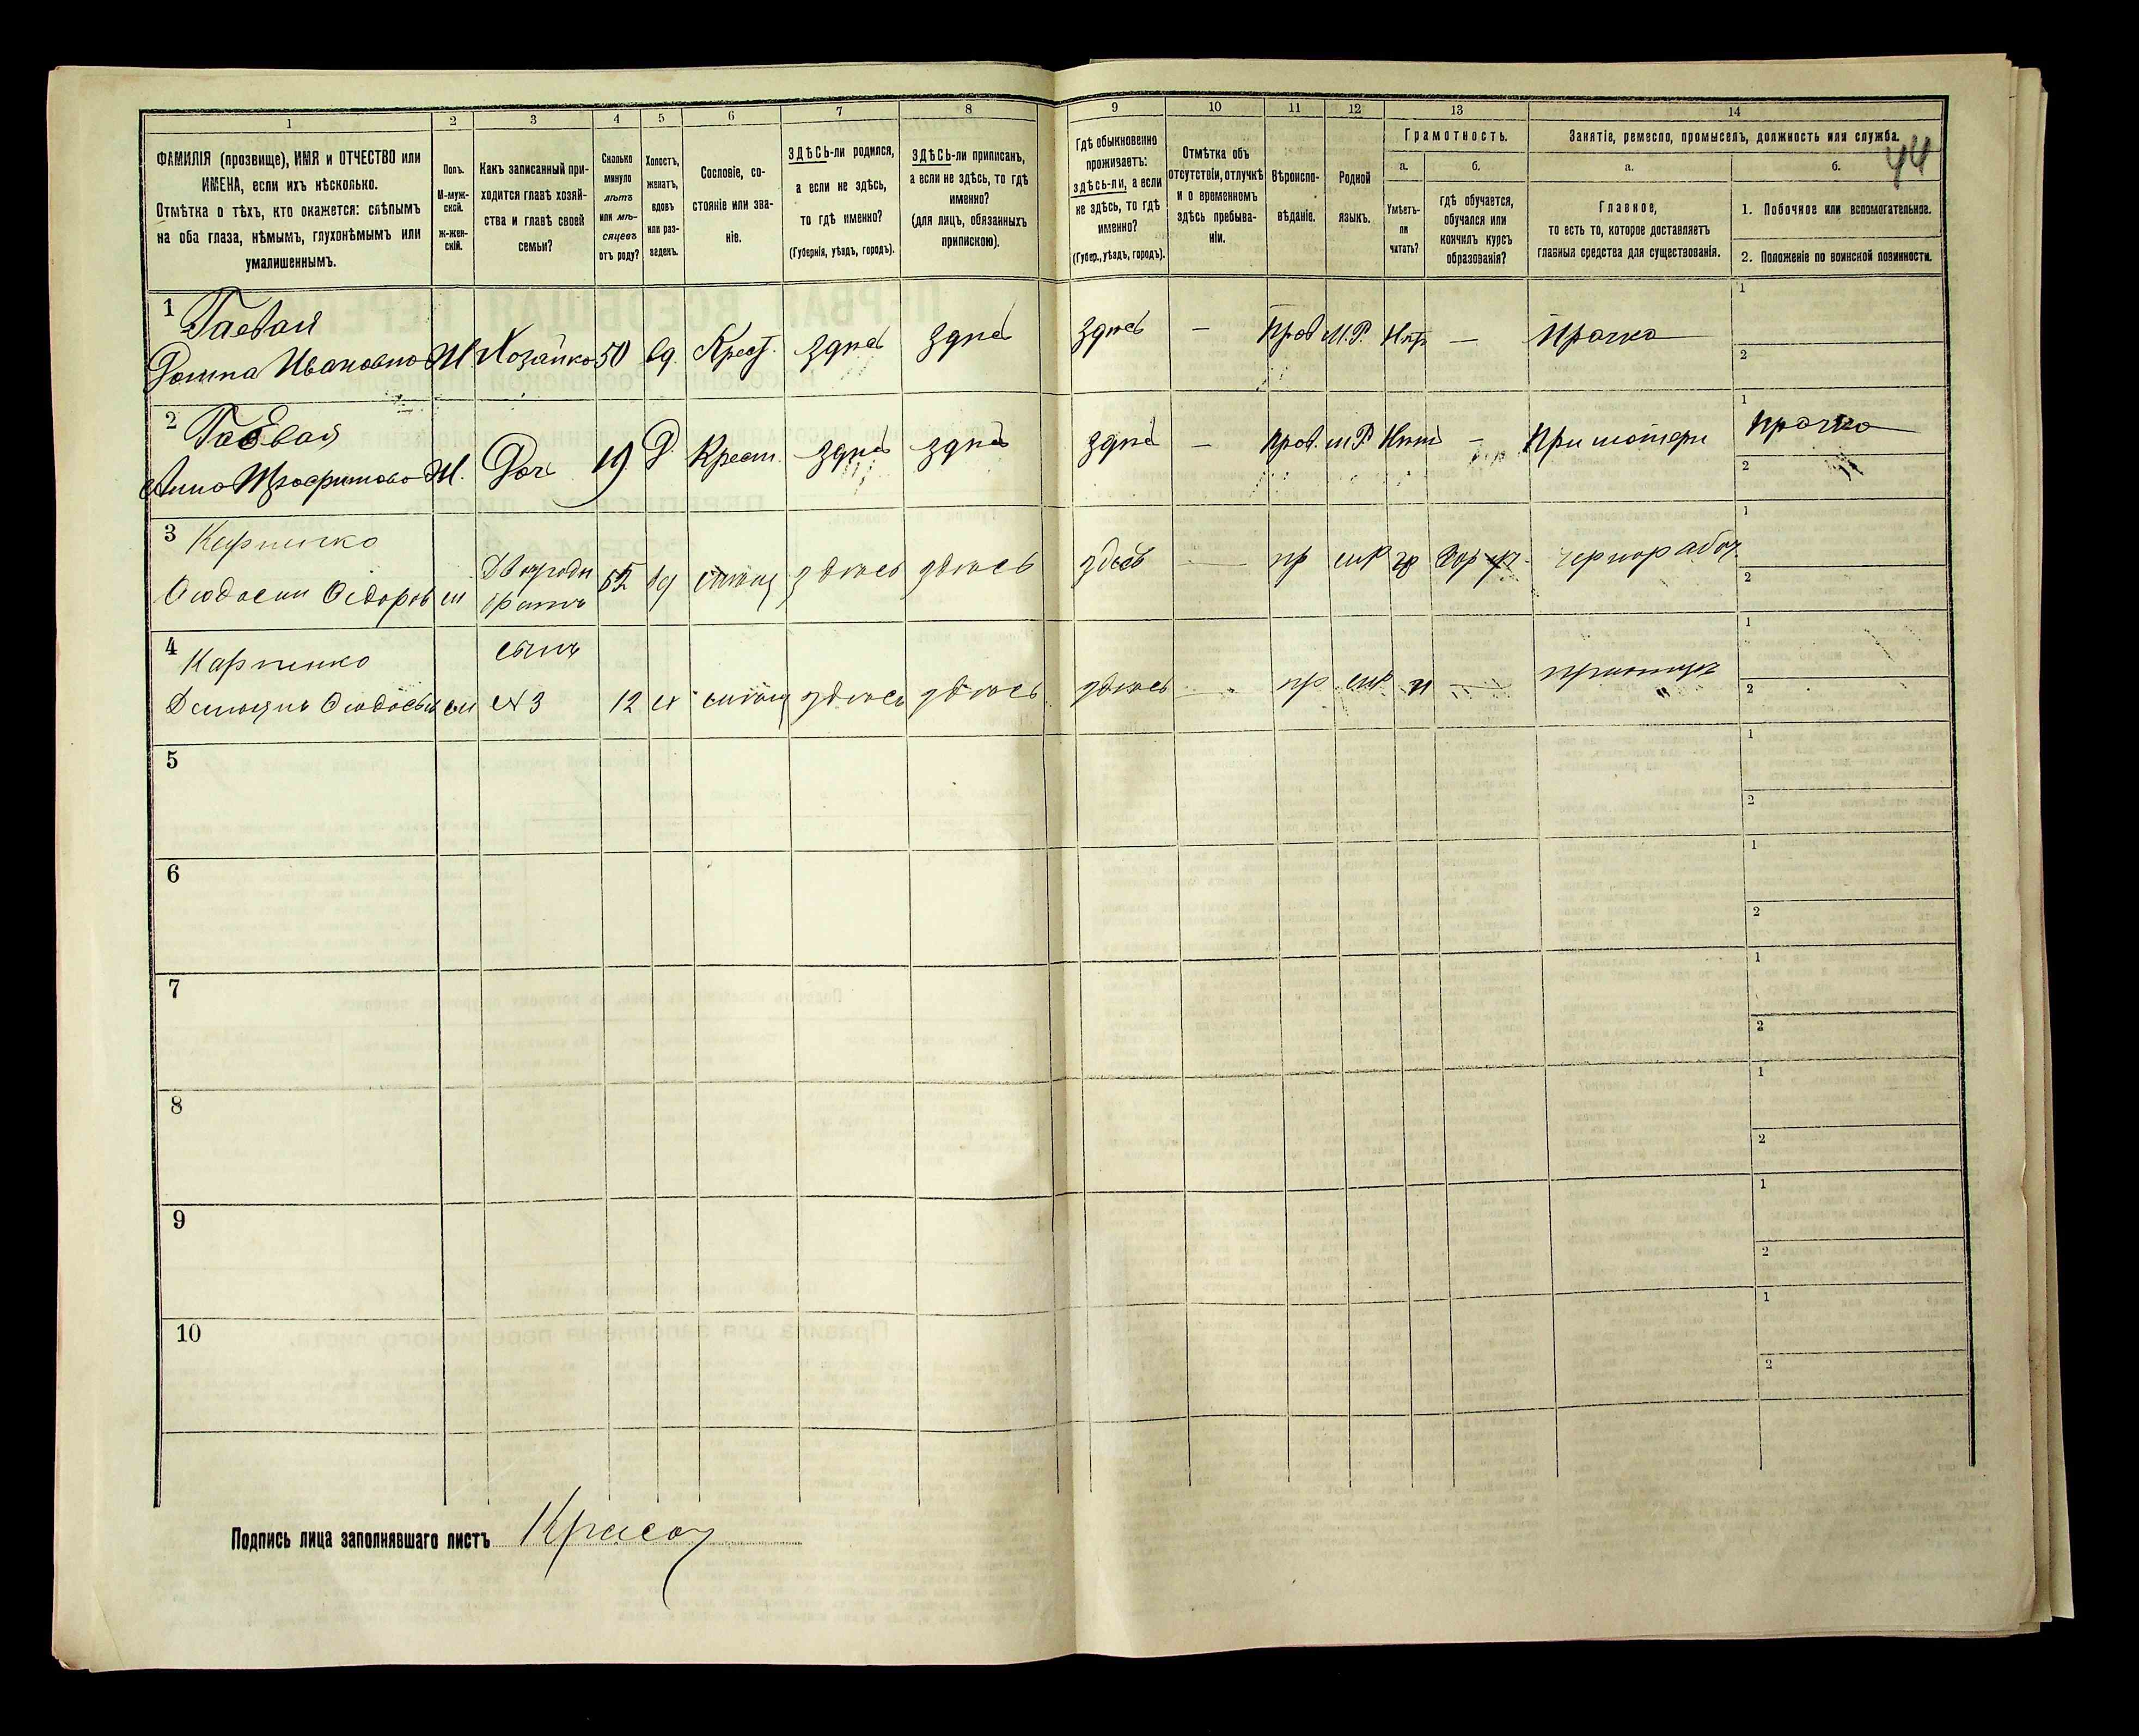 1 2 3 4 5 6 7 8 9 10 11 12 13 14
44
ФАМИЛІЯ (прозвище), ИМЯ и ОТЧЕСТВО или
ИМЕНА, если ихъ нѣсколько.
Отмѣтка о тѣхъ, кто окажется: слѣпымъ
на оба глаза, нѣмымъ, глухонѣмымъ или
умалишеннымъ.
Полъ.
М-муж-
ской.
ж-жен-
скій.
Какъ записанный при-
ходится главѣ хозяй-
ства и главѣ своей
семьи?
Сколько
минуло
лѣтъ
или мѣ-
сяцевъ
отъ роду?
Холостъ,
женатъ,
вдовъ
или раз-
веденъ.
Сословіе, со-
стояніе или зва-
ніе.
ЗДѢСЬ-ли родился,
а если не здѣсь,
то гдѣ именно?
(Губернія, уѣздъ, городъ).
ЗДѢСЬ-ли приписанъ,
а если не здѣсь, то гдѣ
именно?
(для лицъ, обязанныхъ
припискою).
Гдѣ обыкновенно
проживаетъ:
здѣсь-ли, а если
не здѣсь, то гдѣ
именно?
(Губер., уѣздъ, городъ).
Отмѣтка объ
отсутствіи, отлучкѣ
и о временномъ
здѣсь пребыва-
ніи.
Вѣроиспо-
вѣданіе.
Родной
языкъ.
Грамотность.
а.
Умѣетъ-
ли
читать?
б.
гдѣ обучается,
обучался или
кончилъ курсъ
образованія?
Занятіе, ремесло, промыселъ, должность или служба.
а.
Главное,
то есть то, которое доставляетъ
главныя средства для существованія.
б.
1. Побочное или вспомогательное.
2. Положеніе по воинской повинности.
1 Гаевая
Домна Ивановна Ж. Хозяйка 50 вд. Крест. здѣсь здѣсь здѣсь — Прав М.Р. Нѣт — Прачка
1
2
2 Гаевая
Анна Ж. Доч 19 Д. Крест. здѣсь здѣсь здѣсь — Прав. М.Р. Нѣт — При матери
1 Прачка
2
3 Карпенко
Двоюродн
братъ
Феодосий Сидоров м 52 вд здѣсь здѣсь здѣсь — пр мР гр чернорабоч.
1
2
4 Карпенко
сынъ
м №3 12 х здѣсь здѣсь здѣсь — пр мР н —
1
2
5
1
2
6
1
2
7
1
2
8
1
2
9
1
2
10
1
2
Подпись лица заполнявшаго листъ